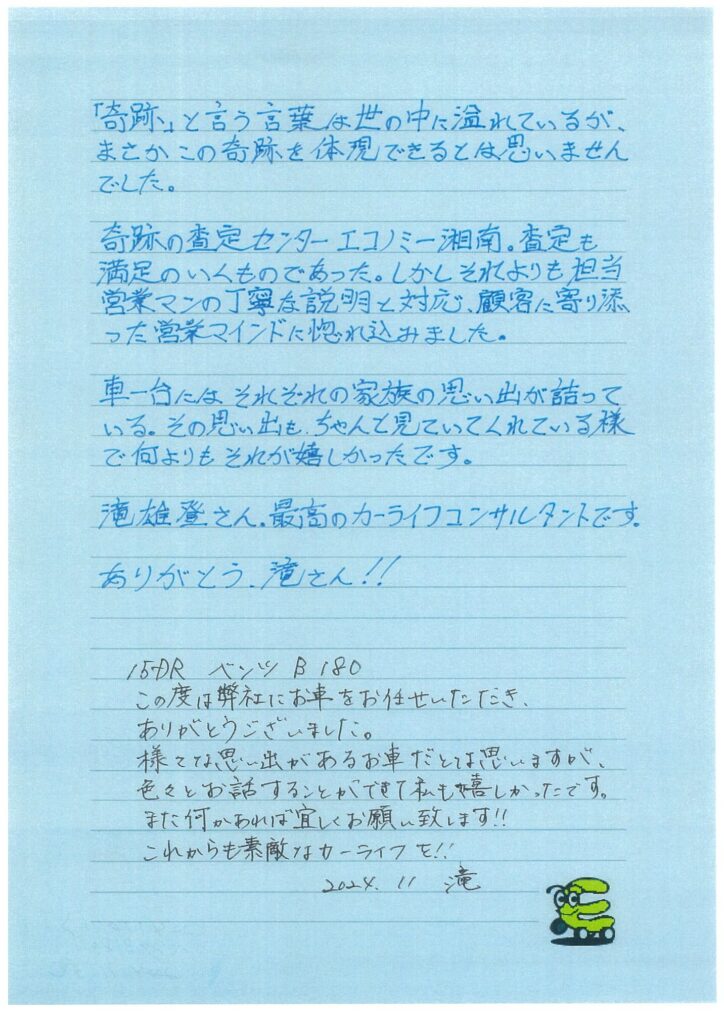 「奇跡」と言う言葉は世の中に溢れているが、
まさかこの奇跡を体現できるとは思いません
でした。
奇跡の査定センターエコノミー湘南。査定も
満足のいくものであった。しかしそれよりも担当
営業マンの丁寧な説明と対応、顧客に寄り添
った営業マインドに惚れ込みました。
車一台にはそれぞれの家族の思い出が詰って
いる。その思い出も、ちゃんと見ていてくれている様
で何よりもそれが嬉しかったです。
滝雄登さん、最高のカーライフコンサルタントです。
ありがとう、滝さん!!
15-DR ベンツ B 180
この度は弊社にお車をお任せいただき、
ありがとうございました。
様々な思い出があるお車だとは思いますが、
色々とお話することができて私も嬉しかったです。
また何かあれば宜しくお願い致します!!
これからも素敵なカーライフを!!
2024. 11 滝